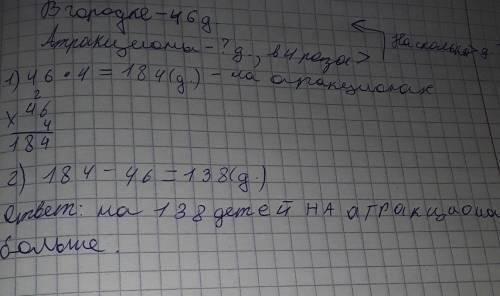 В городке - 46 д.
Атракционы - ? д., в 4 раза > На сколько д
1) 46 • 4 = 184 (д.) - на атракционах
2
× 46
4
184
2) 184 - 46 = 138 (д.)
Ответ: на 138 детей на атракциона
больше.